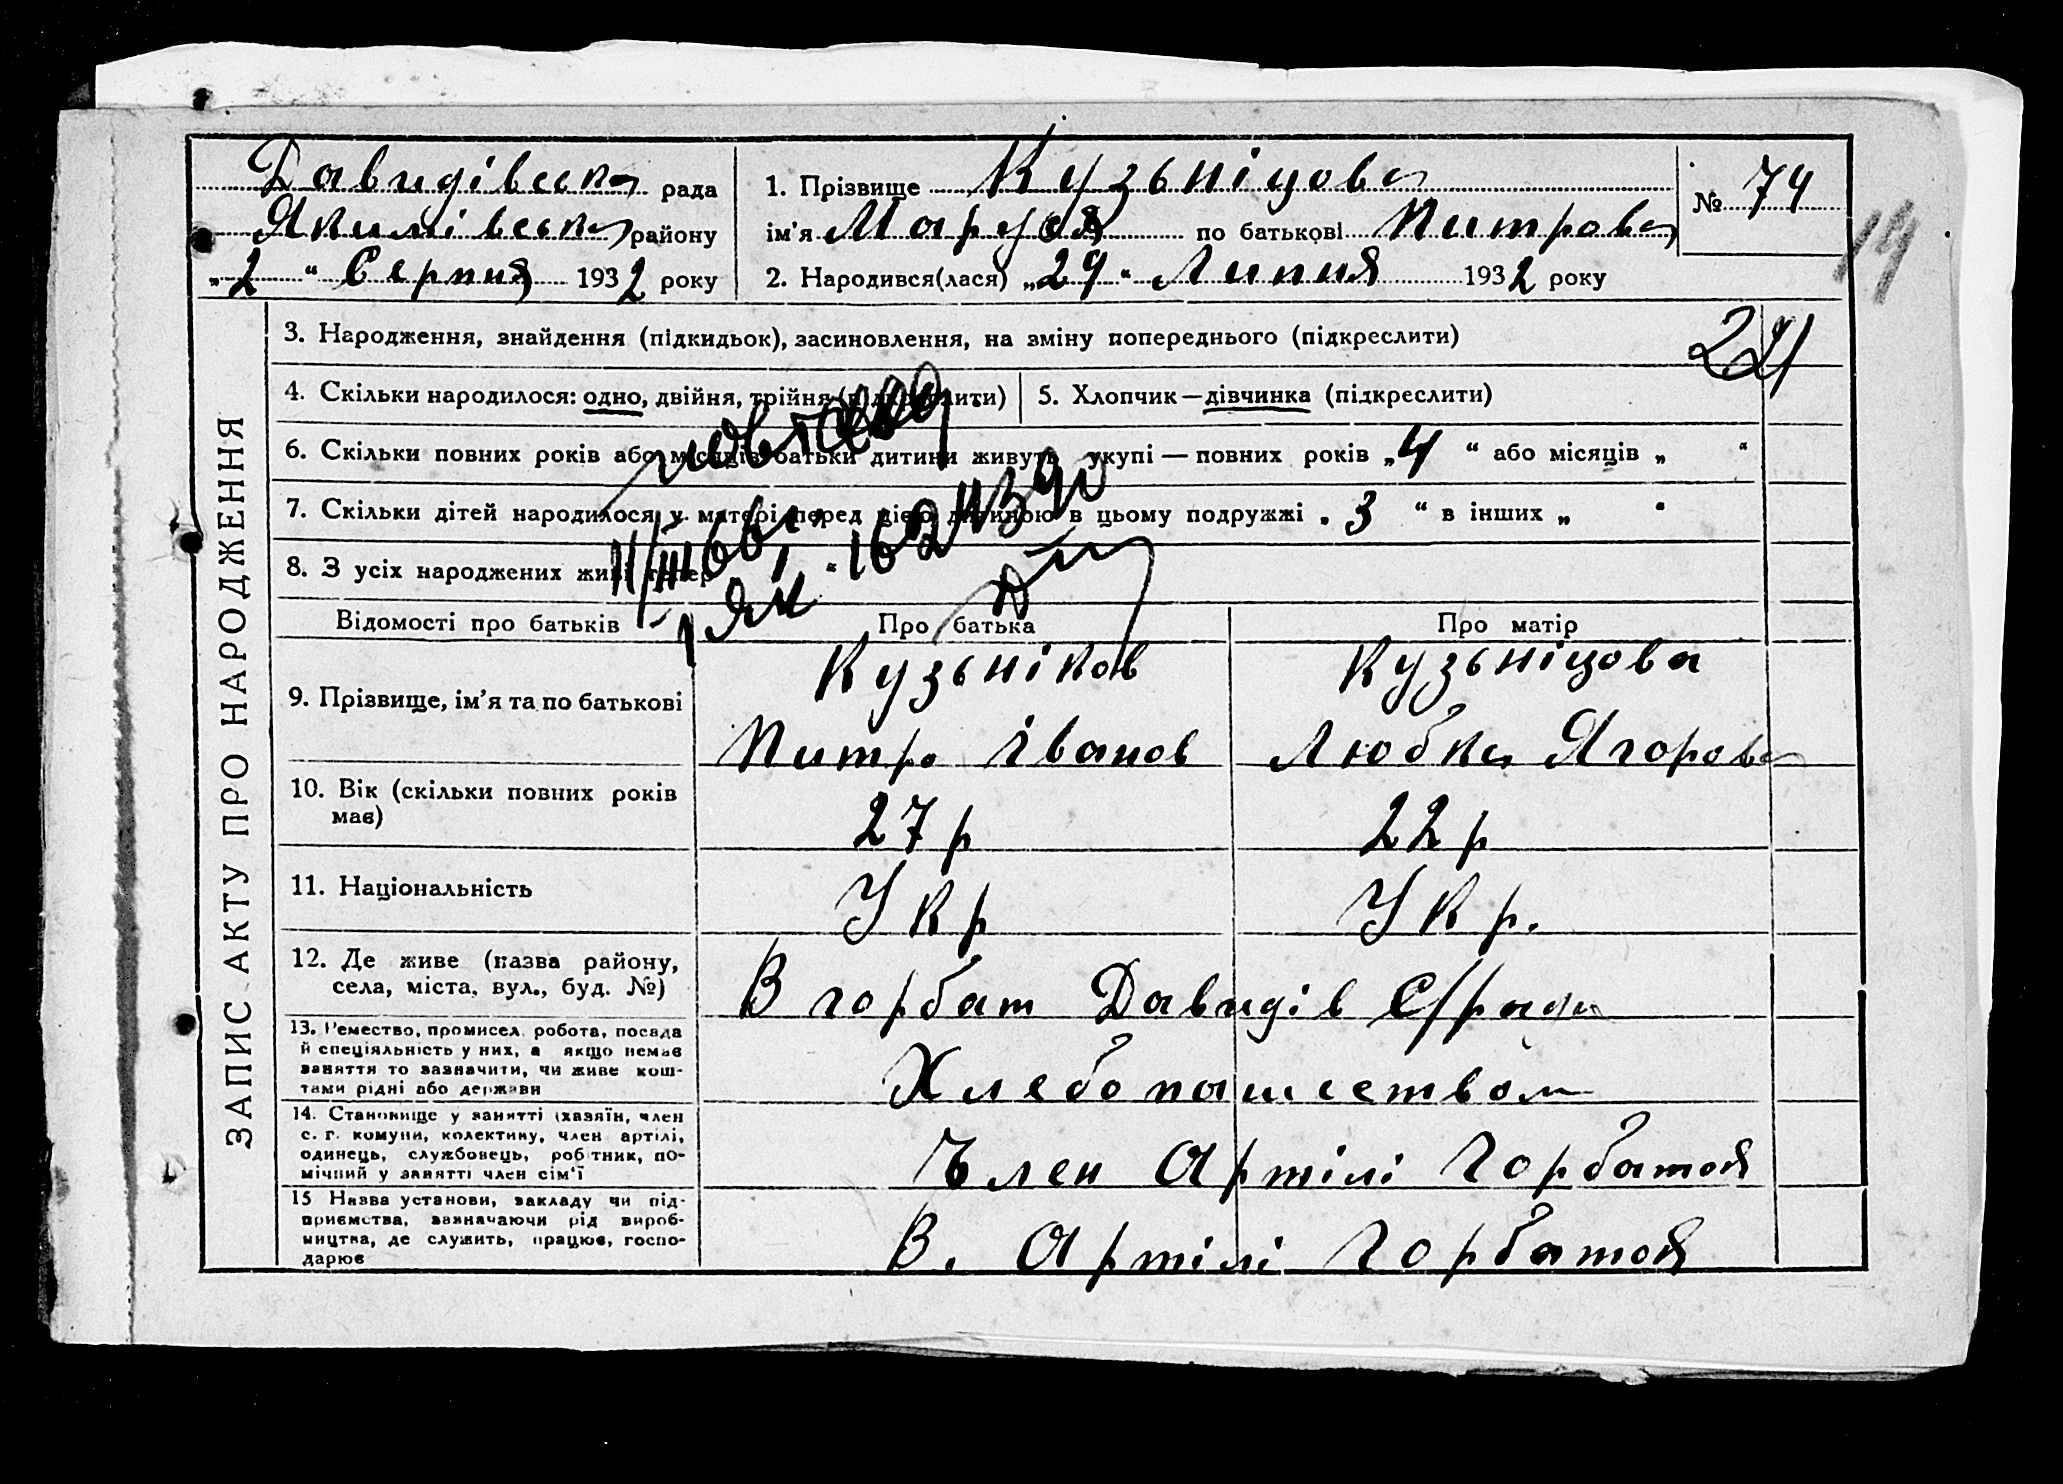 Давидівська рада
Якимівська району
„2“ Серпня 1932 року
1. Прізвище Кузьніцова
ім'я Маруся по батькові Питрова
2. Народився(лася) „29“ Липня 1932 року
№ 74
19
221
ЗАПИС АКТУ ПРО НАРОДЖЕННЯ
3. Народження, знайдення (підкидьок), засиновлення, на зміну попереднього (підкреслити)
4. Скільки народилося: одно, двійня, трійня (підкреслити)
5. Хлопчик—дівчинка (підкреслити)
6. Скільки повних років або місяців батьки дитини живуть укупі — повних років „4“ або місяців „ “
7. Скільки дітей народилося у матері перед цією дитиною в цьому подружжі „3“ в інших „ “
8. З усіх народжених живі тепер
Відомості про батьків
Про батька
Про матір
9. Прізвище, ім'я та по батькові
Кузьніков
Питро Іванов
Кузьніцова
Любка Ягорова
10. Вік (скільки повних років має)
27 р
22 р
11. Національність
Укр
Укр.
12. Де живе (назва району,
села, міста, вул., буд. №)
В горбат Давидів С/ради
13. Ремество, промисел, робота, посада
й спеціяльність у них, а якщо немає
заняття то зазначити, чи живе кош-
тами рідні або держави
Хлебопашеством
14. Становище у занятті (хазяїн, член
с. г. комуни, колективу, член артілі,
одинець, службовець, робітник, по-
мічний у занятті член сім'ї
Ълен Артілі Горбатой
15 Назва установи, закладу чи під-
приємства, зазначаючи рід вироб-
ництва, де служить, працює, госпо-
дарює
В. Артілі Горбатой